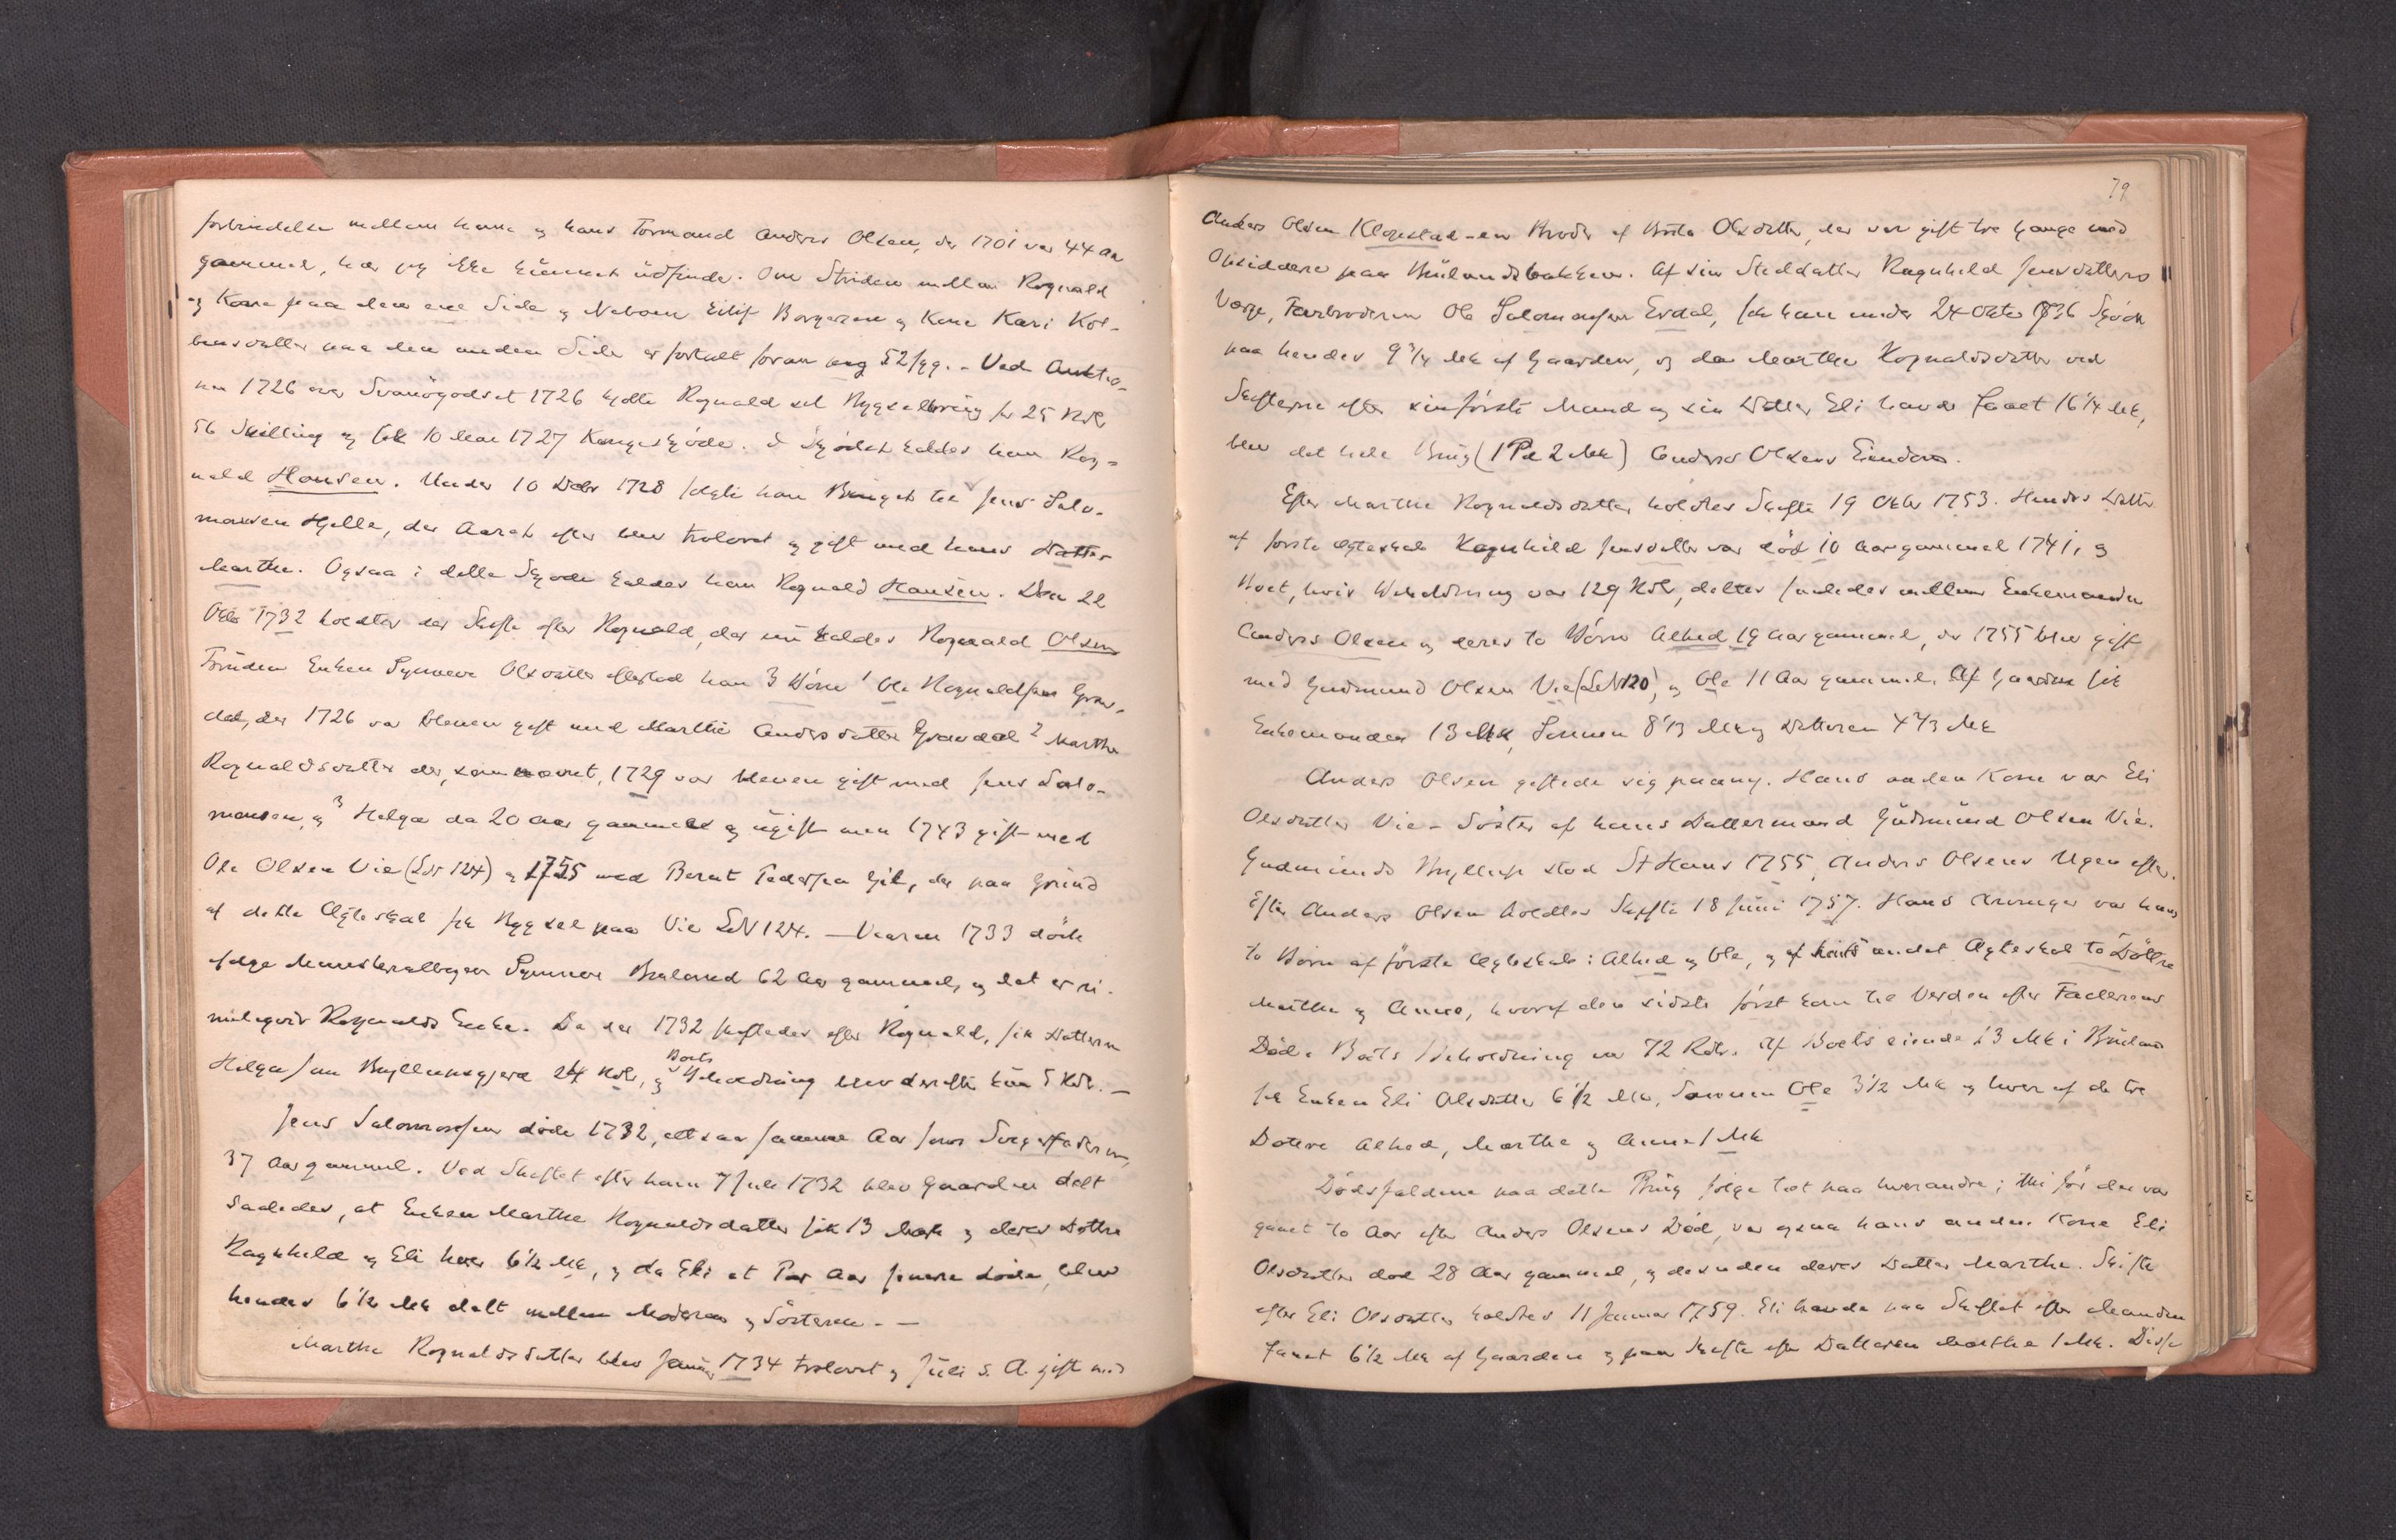 forbindelse mellem ham og hans Formand Anders Olsen, der 1701 var 44 Aar
gammel, har jeg ikke kunnet udfinde. Om Striden mellem Rognald
og Kone paa den ene Side og Naboen Eilif Borgersen og Kone Kari Kol-
bensdatter paa den anden Side er fortalt foran pag 52 fgg. - Ved Auktio-
nen 1726 over Svanögodset 1726 kjöbte Rognald sit Bygselbrug for 25 Rdlr
56 Skilling og fik 10 Mai 1727 Kongeskjöde. I Skjödet kaldes han Rog-
nald Hansen. Under 10 Debr 1728 solgte han Bruget til Jens Salo-
monsen Hjelle, der Aaret efter blev trolovet og gift med hans Datter
Marthe. Ogsaa i dette Skjöde kaldes han Rognald Hansen. Den 22
Oktb 1732 holdtes der Skifte efter Rognald, der nu kaldes Rognald Olsen
Foruden Enken Synneve Olsdatter efterlod han 3 Börn 1 Ole Rognaldsen Grov-
dal, der 1726 var bleven gift med Marthe Andersdatter Grovdal 2 Marthe
Rognaldsdatter der, som nævnt, 1729 var bleven gift med Jens Salo-
monsen, og 3 Helga da 20 Aar gammel og ugift men 1743 gift med
Ole Olsen Vie (LN 124) og 1755 med Bernt Pedersen Gjil, der paa Grund
af dette Ægteskab fik Bygsel paa Vie LN 124. - Vaaren 1733 döde
ifölge Ministerialbogen Synneve Bruland 62 Aar gammel, og det er ri-
meligvis Rognalds Enke. Da der 1732 skiftedes efter Rognald, fik Datteren
Helga som Bryllupsgjerd 24 Rdlr, og Boets Beholdning blev derefter kun 5 Rdlr. -
Jens Salomonsen döde 1732, altsaa samme Aar som Svigerfaderen,
37 Aar gammel. Ved Skiftet efter ham 7 Juli 1732 blev Gaarden delt
saaledes, at Enken Marthe Rognaldsdatter fik 13 Mrk og deres Döttre
Ragnhild og Eli hver 6½ Mk, og da Eli et Par Aar senere döde, blev
hendes 6½ Mk delt mellem Moderen og Sösteren. -
Marthe Rognaldsdatter blev Januar 1734 trolovet og Juli s. A. gift med
79
Anders Olsen Klopstad - en Broder af Brita Olsdatter, der var gift tre Gange med
Opsiddere paa Brulandsbakken. Af sin Steddatter Ragnhild Jensdatters
Værge, Farbroderen Ole Salomonsen Erdal, fik han under 24 Oktbr 1736 Skjöde
paa hendes 9¾ Mk af Gaarden, og da Marthe Rognaldsdatter ved
Skifterne efter sin förste Mand og sin Datter Eli havde faaet 16¼ Mk,
blev det hele Brug (1 Pd 2 Mk) Anders Olsens Eiendom.
Efter Marthe Rognaldsdatter holdtes Skifte 19 Oktbr 1753. Hendes Datter
af förste Ægteskab Ragnhild Jensdatter var död 10 Aar gammel 1741, og
Boet, hvis Beholdning var 129 Rdlr, deltes saaledes mellem Enkemanden
Anders Olsen og deres to Börn Alhed 19 Aar gammel, der 1755 blev gift
med Gudmund Olsen Vie (LN 120), og Ole 11 Aar gammel. Af Gaarden fik
Enkemanden 13 Mk, Sönnen 8⅔ Mk og Datteren 4⅓ Mk
Anders Olsen giftede sig paany. Hans anden Kone var Eli
Olsdatter Vie - Söster af hans Dattermand Gudmund Olsen Vie.
Gudmunds Bryllup stod St Hans 1755, Anders Olsens Ugen efter.
Efter Anders Olsen holdtes Skifte 18 Juni 1757. Hans Arvinger var hans
to Börn af förste Ægteskab: Alhed og Ole, og af hans andet Ægteskab to Döttre
Marthe og Anne, hvoraf den sidste först kom til Verden efter Faderens
Död. Boets Beholdning var 72 Rdlr. Af Boets eiende 13 Mk i Bruland
fik Enken Eli Olsdatter 6½ Mk, Sönnen Ole 3½ Mk og hver af de tre
Döttre Alhed, Marthe og Anne 1 Mk
Dödsfaldene paa dette Brug fölge tæt paa hverandre; thi för der var
gaaet to Aar efter Anders Olsens Död, var ogsaa hans anden Kone Eli
Olsdatter död 28 Aar gammel, og desuden deres Datter Marthe. Skifte
efter Eli Olsdatter holdtes 11 Januar 1759. Eli havde paa Skiftet efter Manden
faaet 6½ Mk af Gaarden og paa Skifte efter Datteren Marthe 1 Mk. Disse